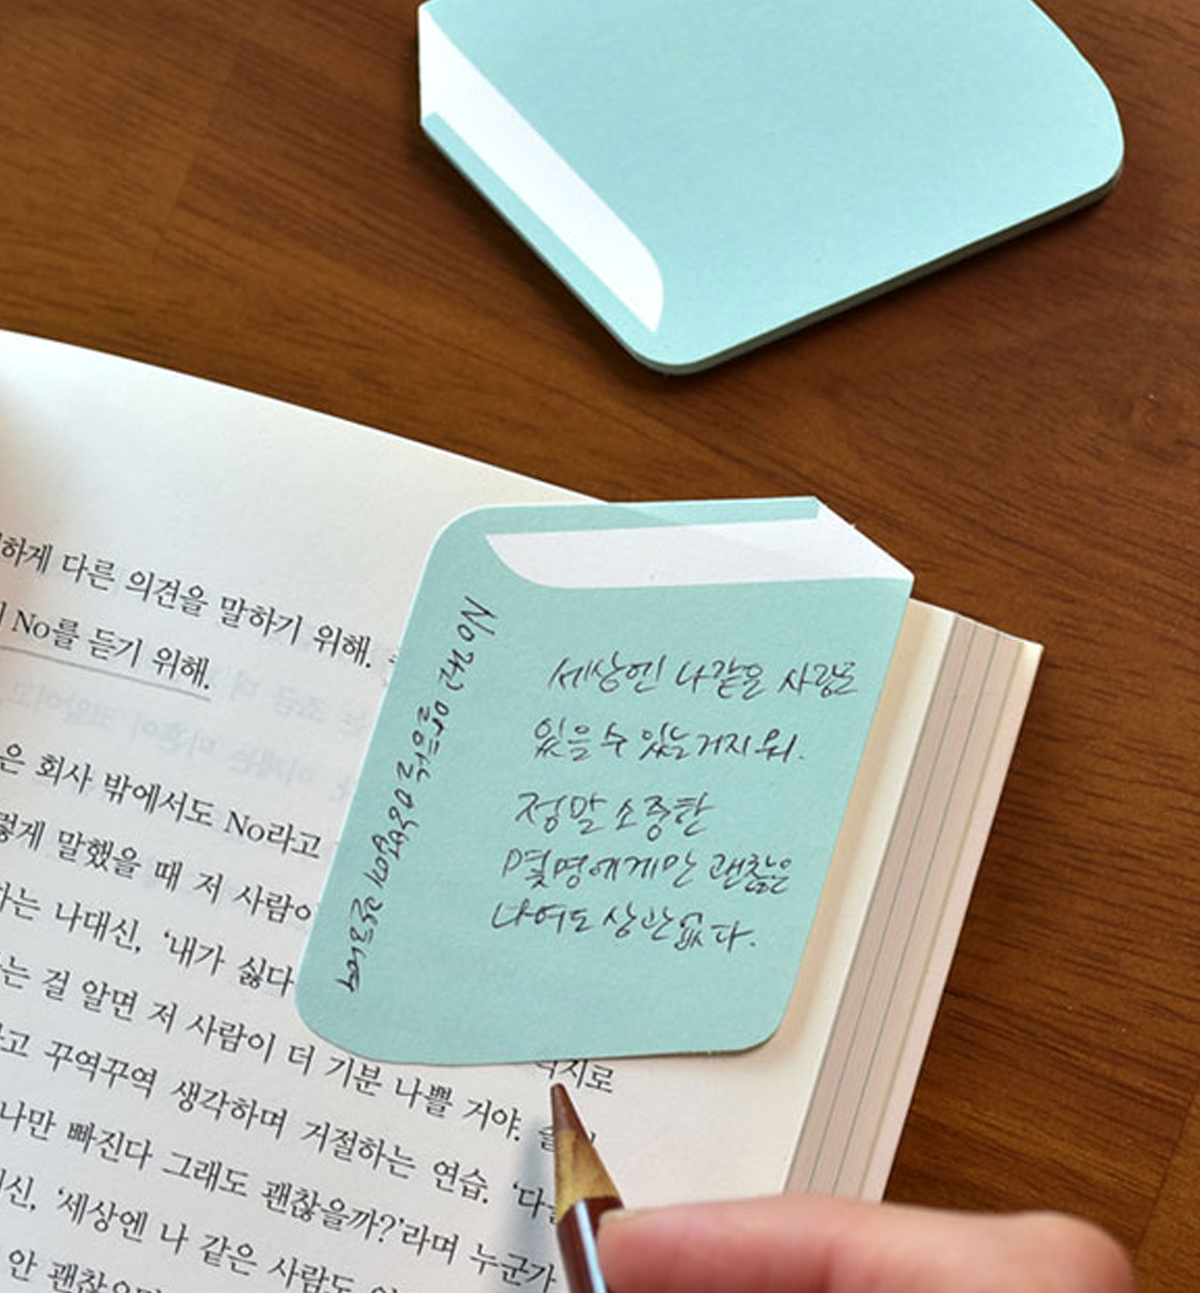 하게 다른 의견을 말하기 위해.
No를 듣기 위해.
은 회사 밖에서도 No라고
렇게 말했을 때 저 사람이
하는 나대신, ‘내가 싫다
는 걸 알면 저 사람이 더 기분 나쁠 거야.
고 꾸역꾸역 생각하며 거절하는 연습. ‘다
나만 빠진다 그래도 괜찮을까?’라며 누군가
신, ‘세상엔 나 같은 사람도
안 괜찮으면
지로
세상엔 나같은 사람도
있을 수 있는거지 뭐.
정말 소중한
몇명에게만 괜찮은
나여도 상관없다.
No라고 말